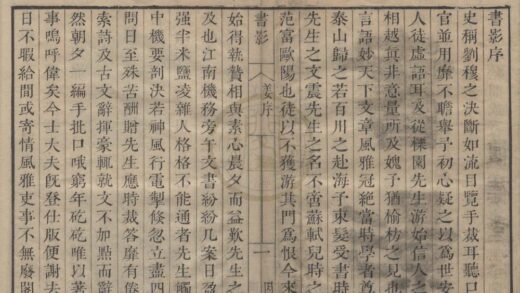 書影序
史稱劉穆之決斷如流目覽手裁耳聽口
官並用靡不贍舉予初心疑之以爲世安
人徒虛語耳及從櫟園先生游始信人之
相越眞非意量所及媿予猶榆枋之見也
言語妙天下文章風雅冠絕當時學者尊
泰山歸之若百川之赴海予束髮受書時
先生之文震先生之名不啻蘇軾兒時之
范富歐陽也徒以不獲游其門爲恨今來
書影 姜序 一
始得執贄相與素心晨夕而益歎先生之
及也江南機務旁午文書紛紛几案日盈
强半米鹽凌雜人格格不能通者先生觸
中機要剖決若神風行電掣倏忽立盡四
問日至殊苦酬贈先生應時裁答靡有倦
索詩及古文辭揮豪輒就文不加點而辭
然朝夕一編手批口哦窮年矻矻唯以著
事嗚呼偉矣今士大夫旣登仕版便謝去
日不暇給間或寄情風雅吏事不無廢閣